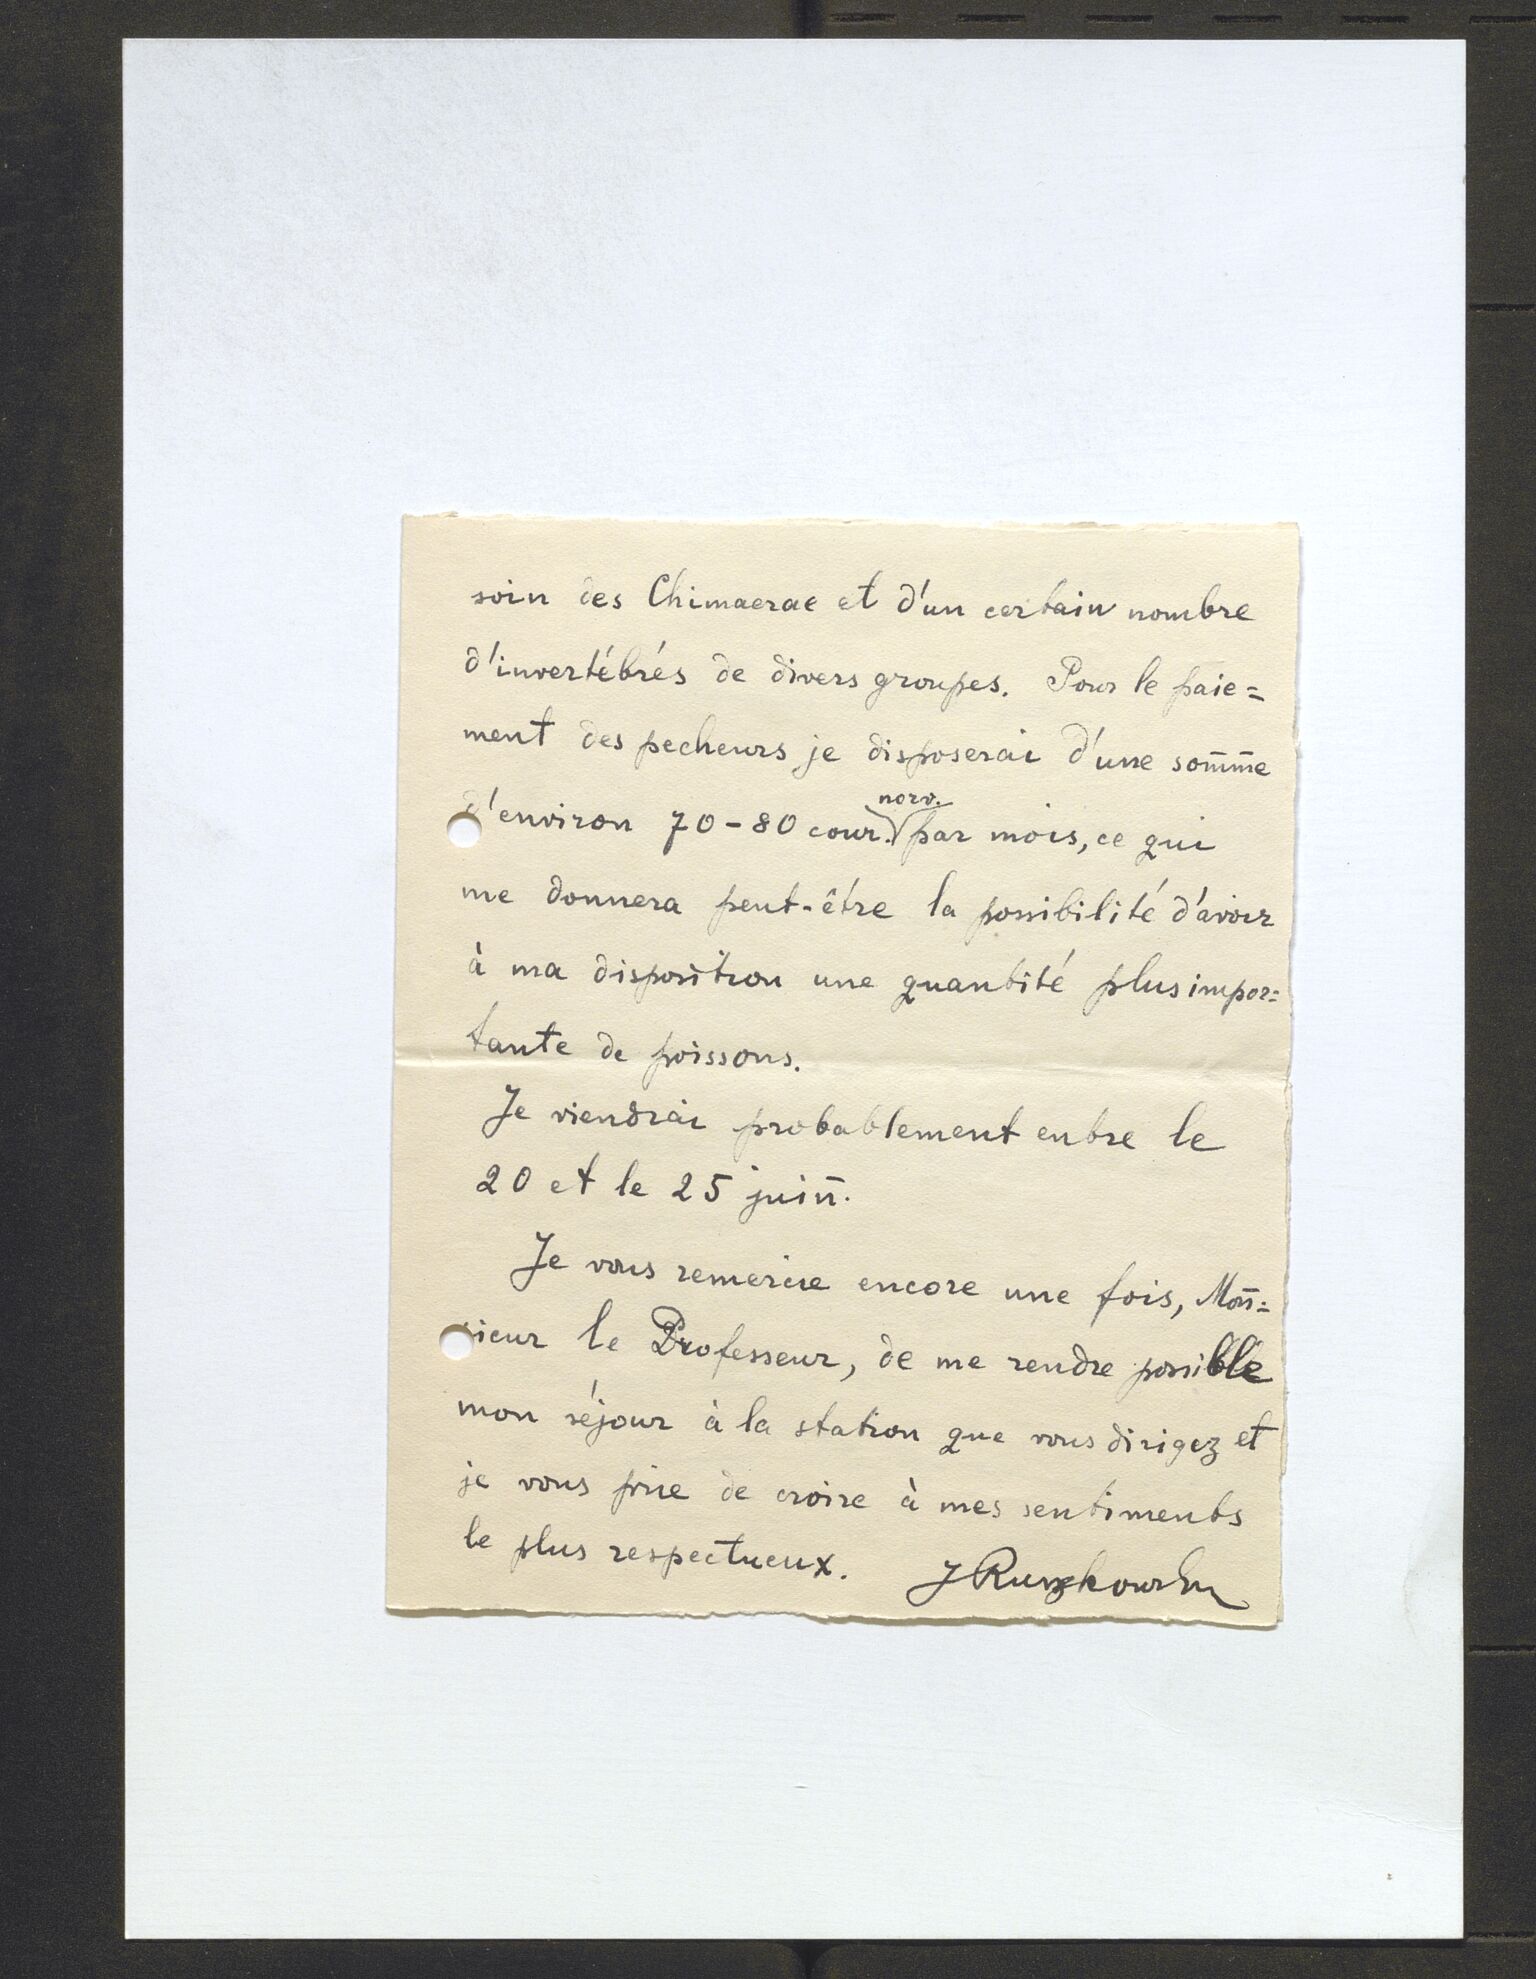 soin des Chimaerae et d'un certain nombre
d'invertébrés de divers groupes. Pour le paie=
ment des pecheurs je disposerai d'une som̅m̅e
d'environ 70-80 cour. norv. par mois, ce qui
me donnera peut-être la possibilité d'avoir
à ma disposition une quantité plus impor=
tante de poissons.
Je viendrai probablement entre le
20 et le 25 juin̅.
Je vous remercie encore une fois, Mon̅=
sieur le Professeur, de me rendre possible
mon séjour à la station que vous dirigez et
je vous prie de croire à mes sentiments
le plus respectueux. J Ruszkowski